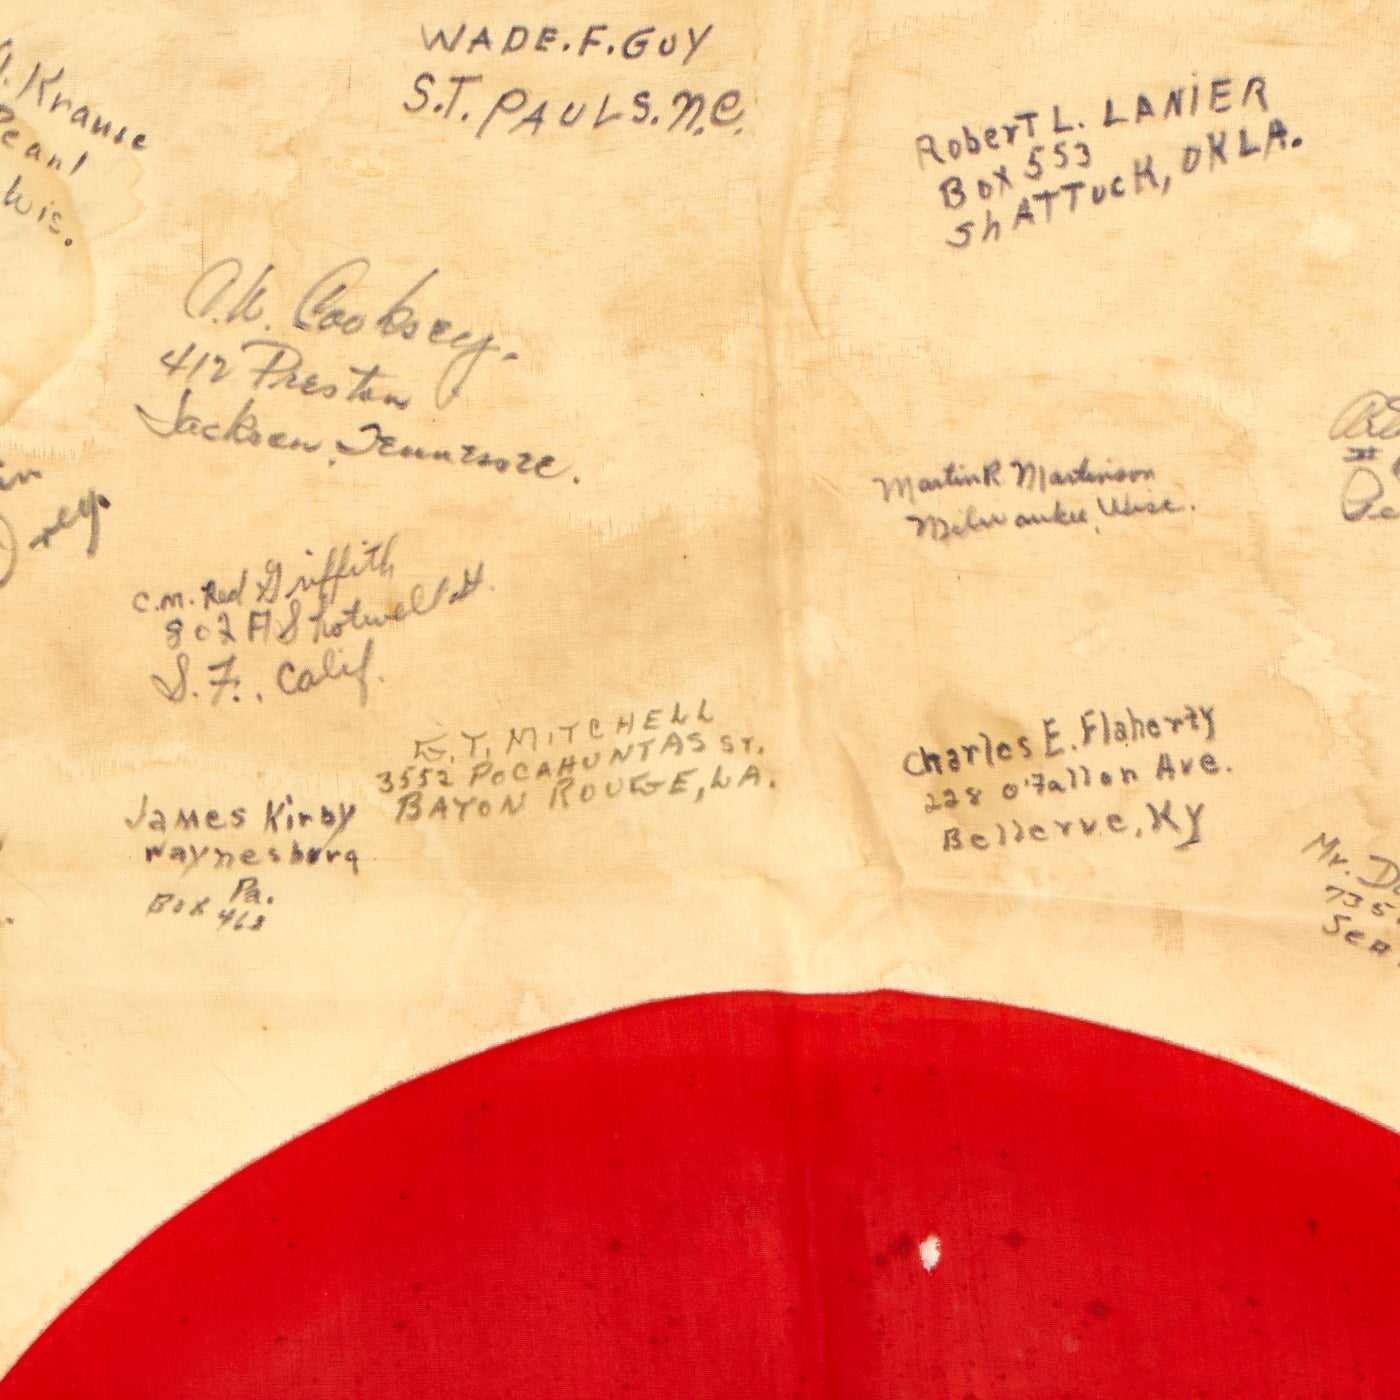 Krause
Wis.
WADE.F.GUY
S.T. PAULS.N.C.
Robert L. LANIER
Box 553
ShATTucK, OKLA.
Cooksey.
412 Preston
Jackson, Tennessee.
Martin R Martinson
Milwaukee, Wisc.
C.M. Red Griffith
802 A Shotwell St.
S.F., Calif.
E.T. MITCHELL
3552 POCAHUNTAS ST.
BATON ROUGE, LA.
James Kirby
Waynesburg
Pa.
Box 468
Charles E. Flaherty
228 O'Fallon Ave.
Bellevue, Ky
Mr.
735